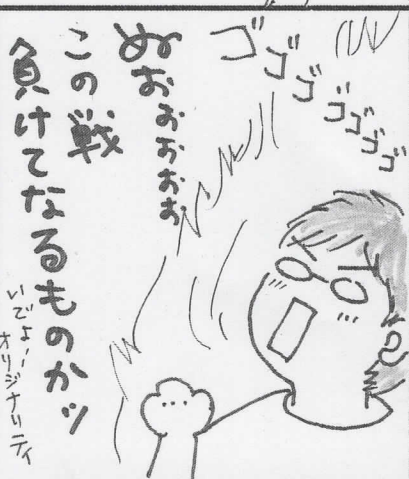 ゴゴゴゴゴゴゴ
ぬおぉぉぉぉ
この戦
負けてなるものかッ
いでよー!
オリジナリティ